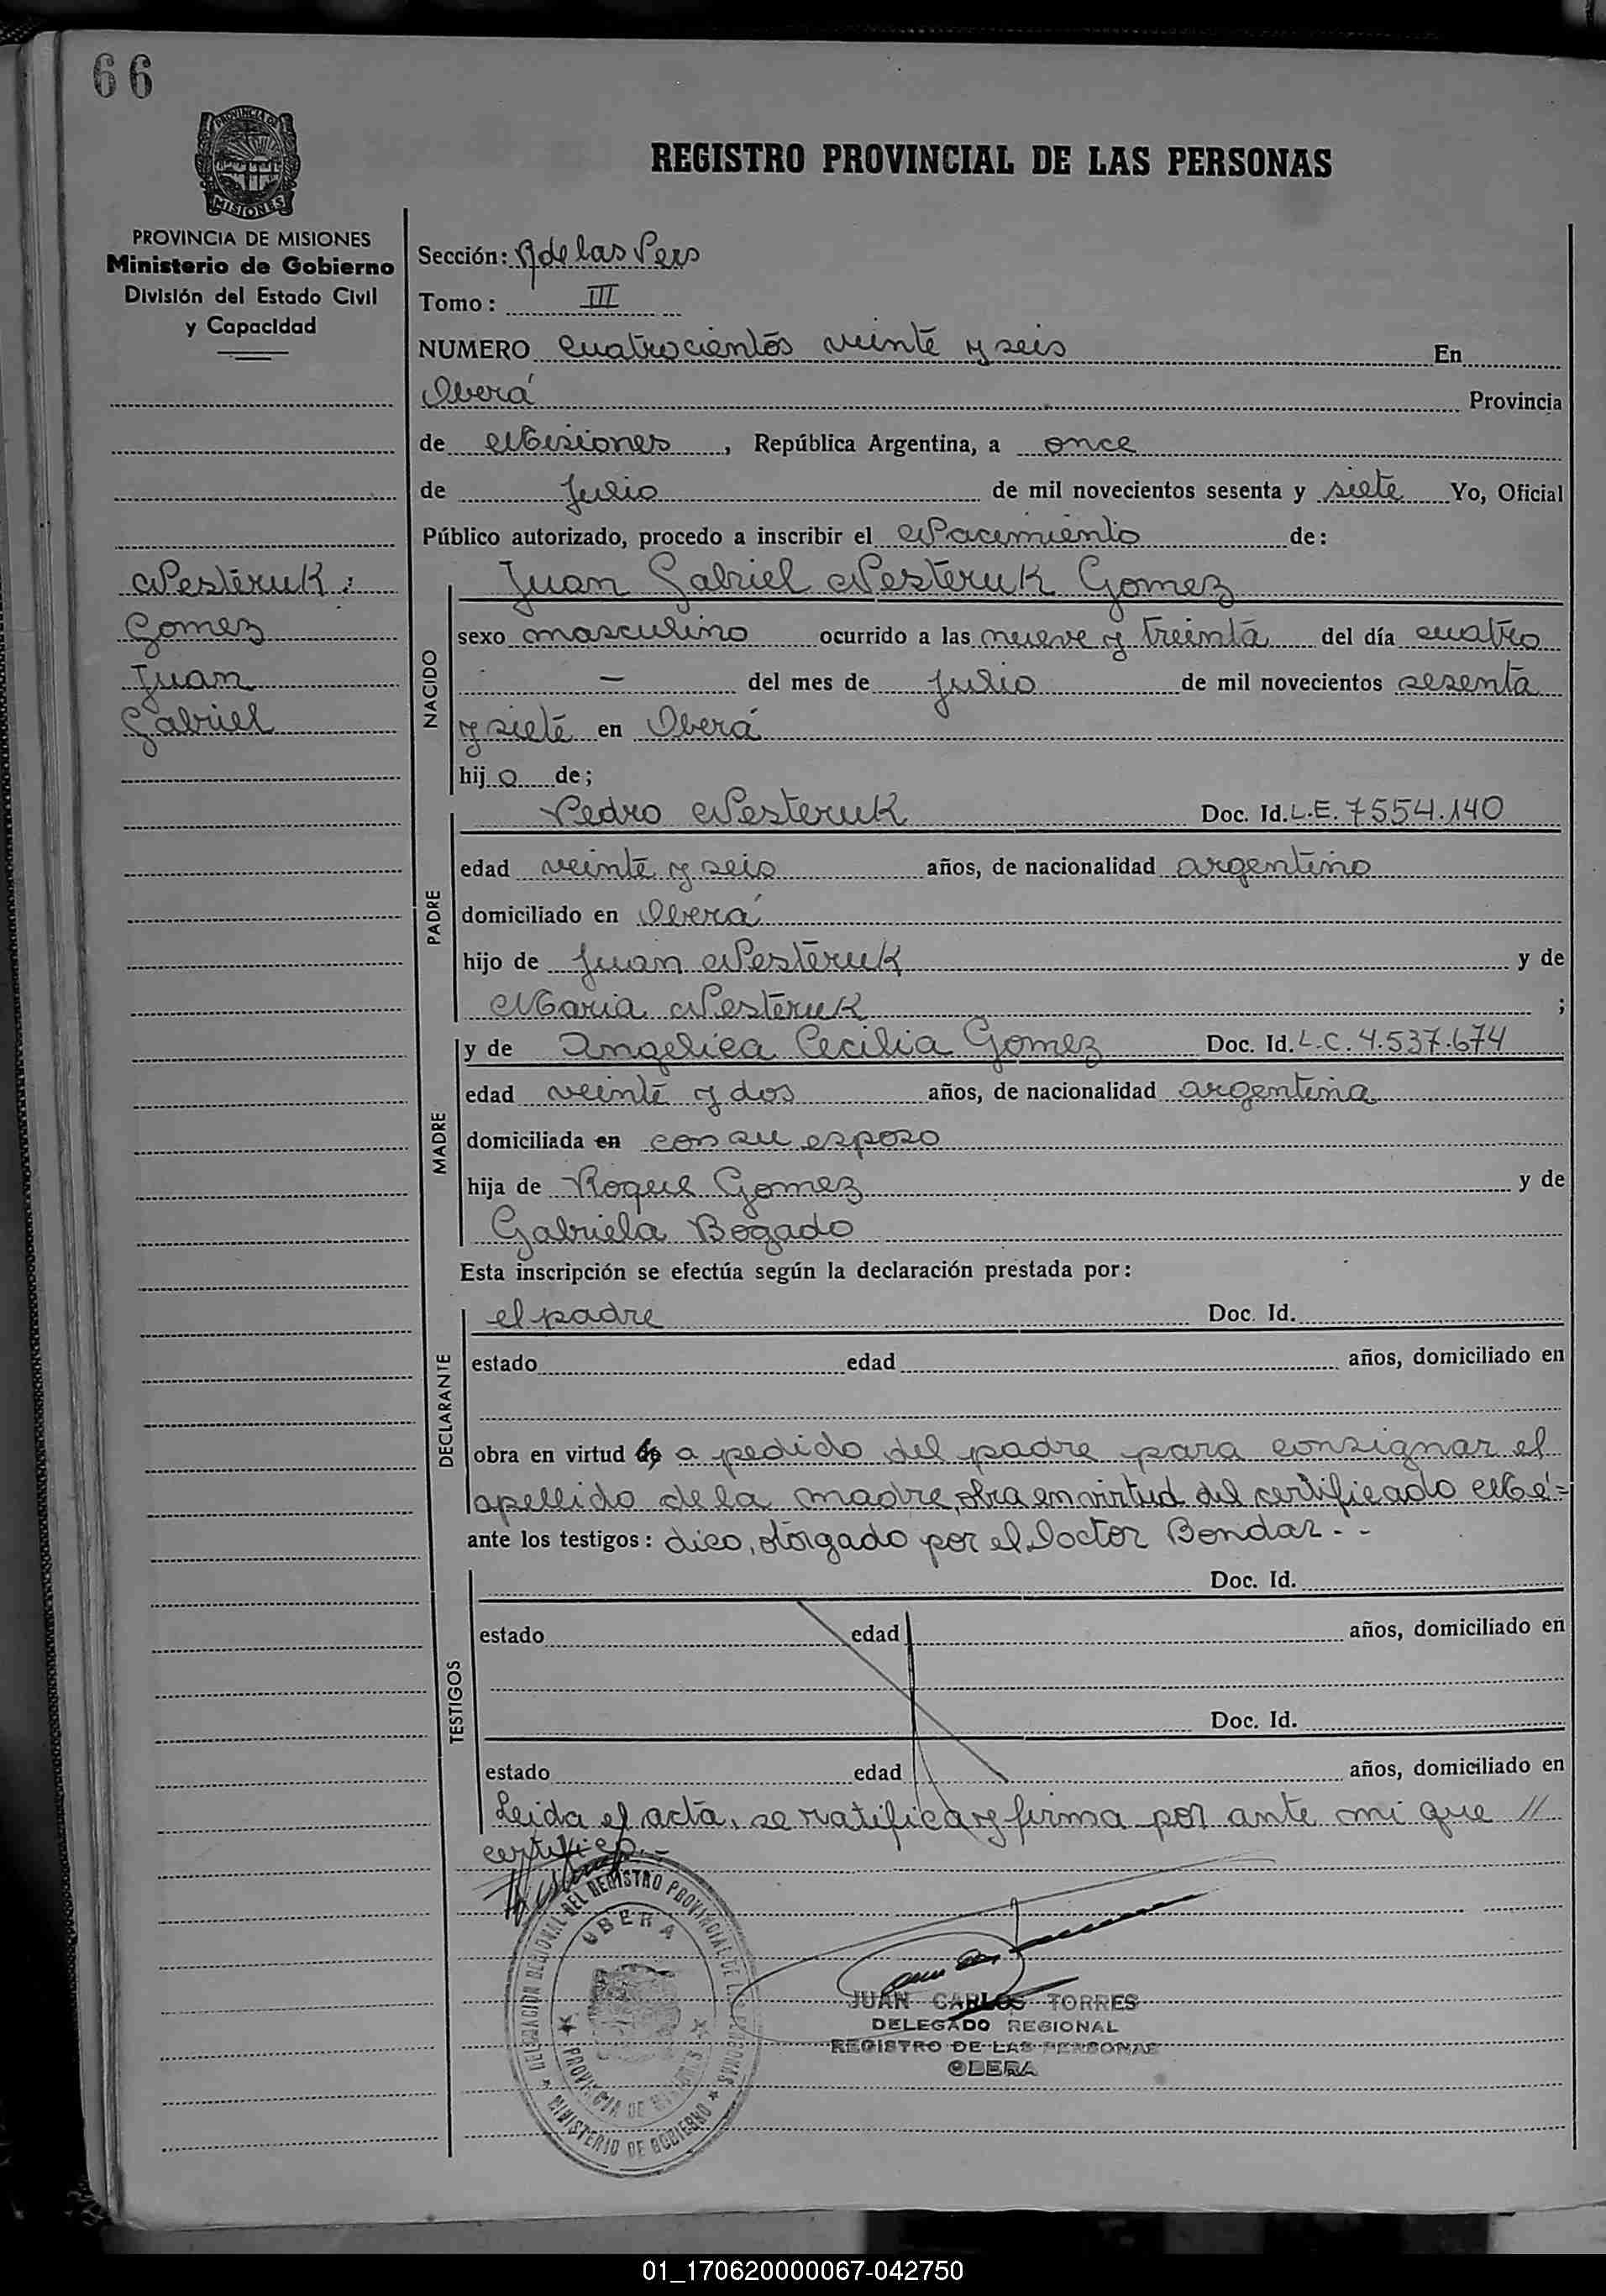 66
PROVINCIA DE
MISIONES
REGISTRO PROVINCIAL DE LAS PERSONAS
PROVINCIA DE MISIONES
Ministerio de Gobierno
División del Estado Civil
y Capacidad
Nesteruk:
Gomez
Juan
Gabriel
Sección: R de las Pers
Tomo: III
NUMERO cuatrocientos veinte y seis En
Oberá Provincia
de Misiones, República Argentina, a once
de Julio de mil novecientos sesenta y siete Yo, Oficial
Público autorizado, procedo a inscribir el Nacimiento de:
NACIDO
Juan Gabriel Nesteruk Gomez
sexo masculino ocurrido a las nueve y treinta del día cuatro
— del mes de Julio de mil novecientos sesenta
y siete en Oberá
hijo de;
PADRE
Pedro Nesteruk Doc. Id. L.E. 7554.140
edad veinte y seis años, de nacionalidad argentino
domiciliado en Oberá
hijo de Juan Nesteruk y de
Maria Nesteruk ;
MADRE
y de Angelica Cecilia Gomez Doc. Id. L.C. 4.537.674
edad veinte y dos años, de nacionalidad argentina
domiciliada en con su esposo
hija de Roque Gomez y de
Gabriela Bogado
Esta inscripción se efectúa según la declaración prestada por:
DECLARANTE
el padre Doc. Id.
estado edad años, domiciliado en
obra en virtud de a pedido del padre para consignar el
apellido de la madre, obra en virtud del certificado Mé=
ante los testigos: dico, otorgado por el Doctor Bondar. -
TESTIGOS
Doc. Id.
estado edad años, domiciliado en
Doc. Id.
estado edad años, domiciliado en
Leida el acta, se ratifica y firma por ante mi que //
certifico.-
DELEGACION REGIONAL DEL REGISTRO PROVINCIAL DE LAS PERSONAS
OBERA
PROVINCIA DE MISIONES
MINISTERIO DE GOBIERNO
JUAN CARLOS TORRES
DELEGADO REGIONAL
REGISTRO DE LAS PERSONAS
OBERA
01_170620000067-042750